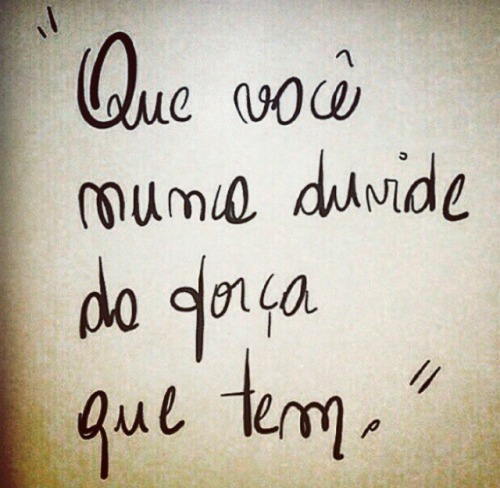 "Que você
nunca duvide
da força
que tem."